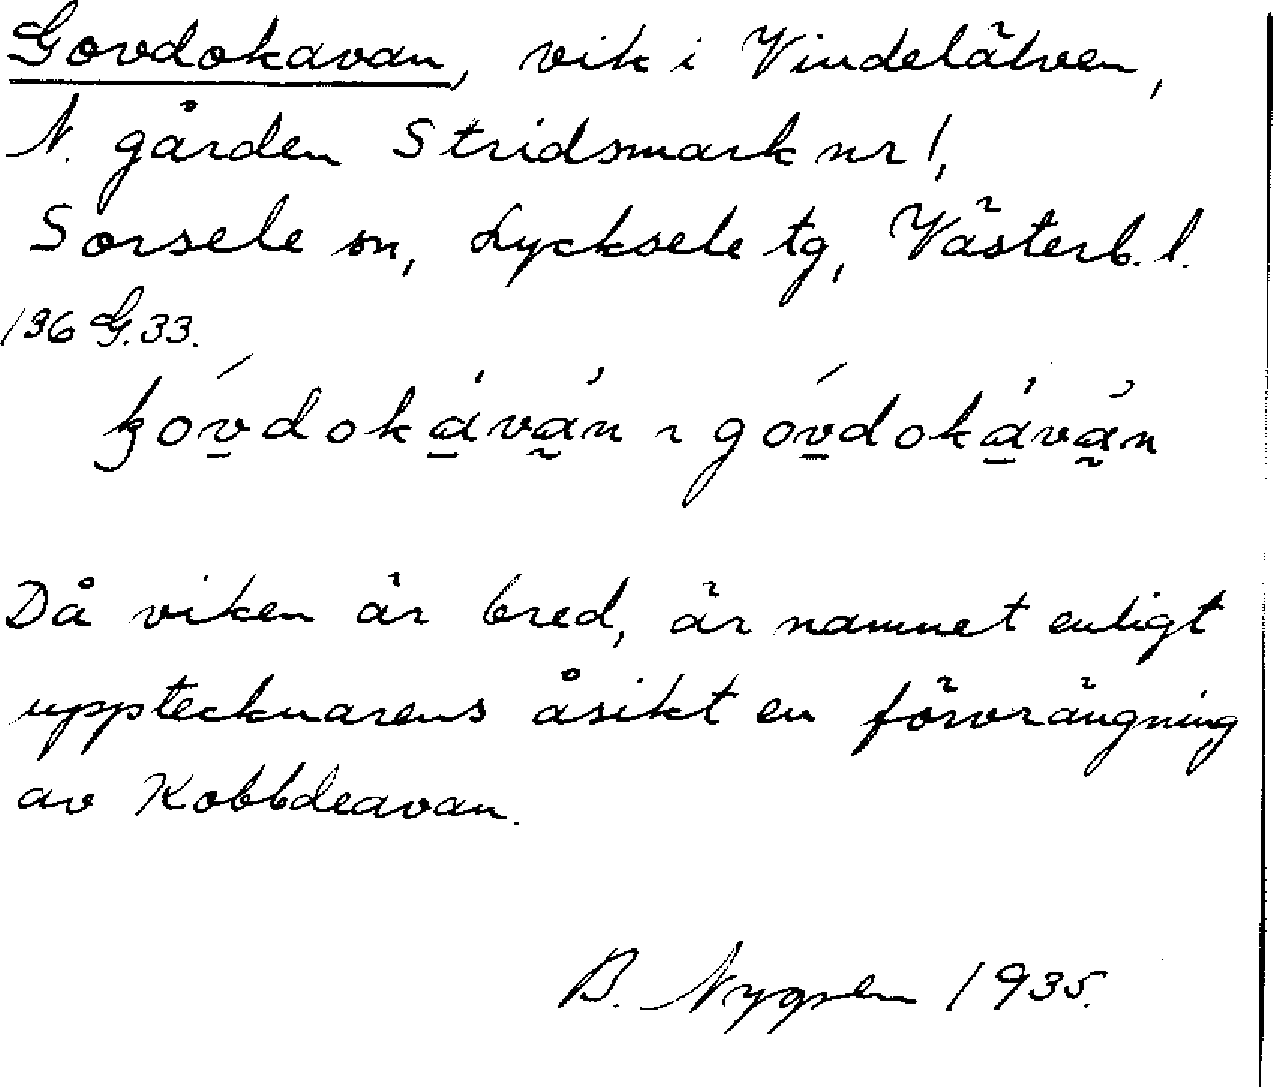 Govdokavan, vik i Vindelälven,
N. gården Stridsmark nr 1,
Sorsele sn, Lycksele tg, Västerb. l.
136 G. 33.
ꞡóv̲doká̲vá̰n ~ góv̲doká̲vá̰n
Då viken är bred, är namnet enligt
upptecknarens åsikt en förvrängning
av Kobbdeavan.
B. Nygren 1935.